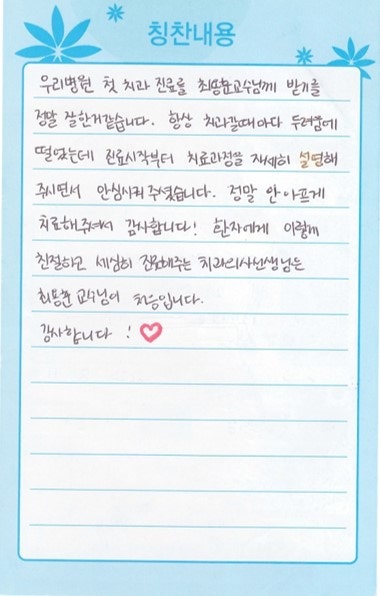 칭찬내용
우리병원 첫 치과 진료를 최용훈교수님께 받기를
정말 잘한거같습니다. 항상 치과갈때마다 두려움에
떨었는데 진료시작부터 치료과정을 자세히 설명해
주시면서 안심시켜주셨습니다. 정말 안아프게
치료해주셔서 감사합니다! 환자에게 이렇게
친절하고 세심히 진료해주는 치과의사선생님은
최용훈 교수님이 처음입니다.
감사합니다 !